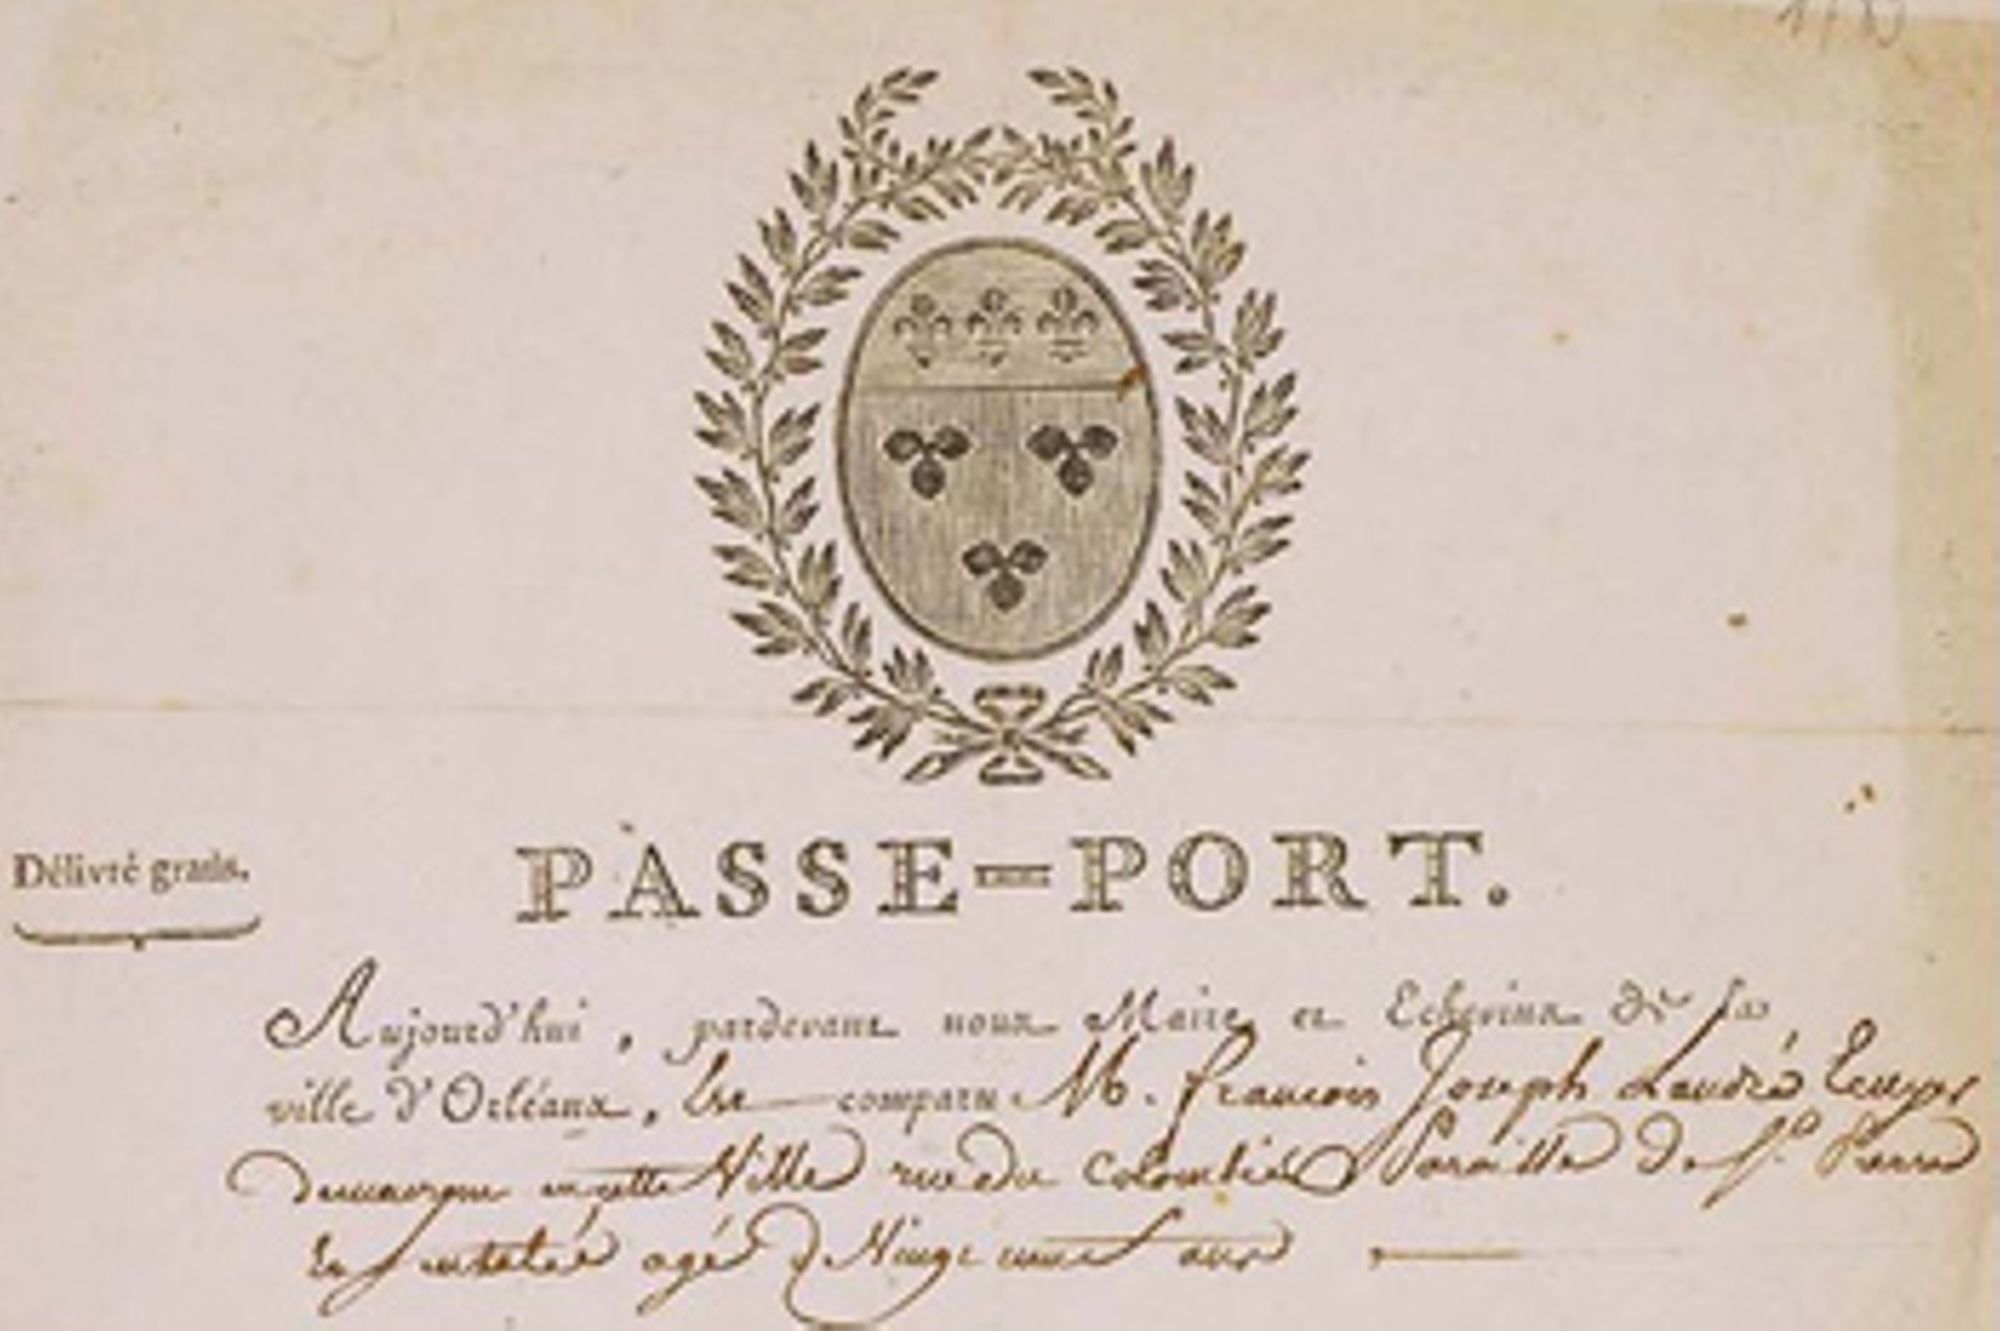 Délivré gratis.
PASSE=PORT.
Aujourd'hui, pardevant nous Maire et Echevins de la
ville d'Orléans, Est comparu M. francois Joseph Landré
demeurant en cette Ville rue du Colombier Paroisse de St. Pierre
agé de Vingt neuf ans